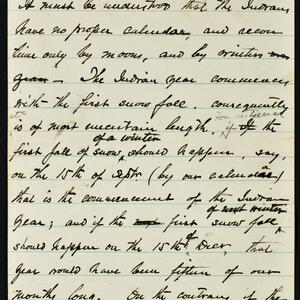 It must be understood that the Indians
have no proper calendar, and recon
time only by moons, and by winters
year - The Indian year commences
with the first snow fall consequently
is of most uncertain length if the
of a winter
first fall of snow should happen, say,
on the 15th of Septr (by our calendar)
that is the commencement of the Indian
of next winter
year; and if the first snow fall
should happen on the 15th Decr that
year would have been fifteen of our
months long. On the contrary if the